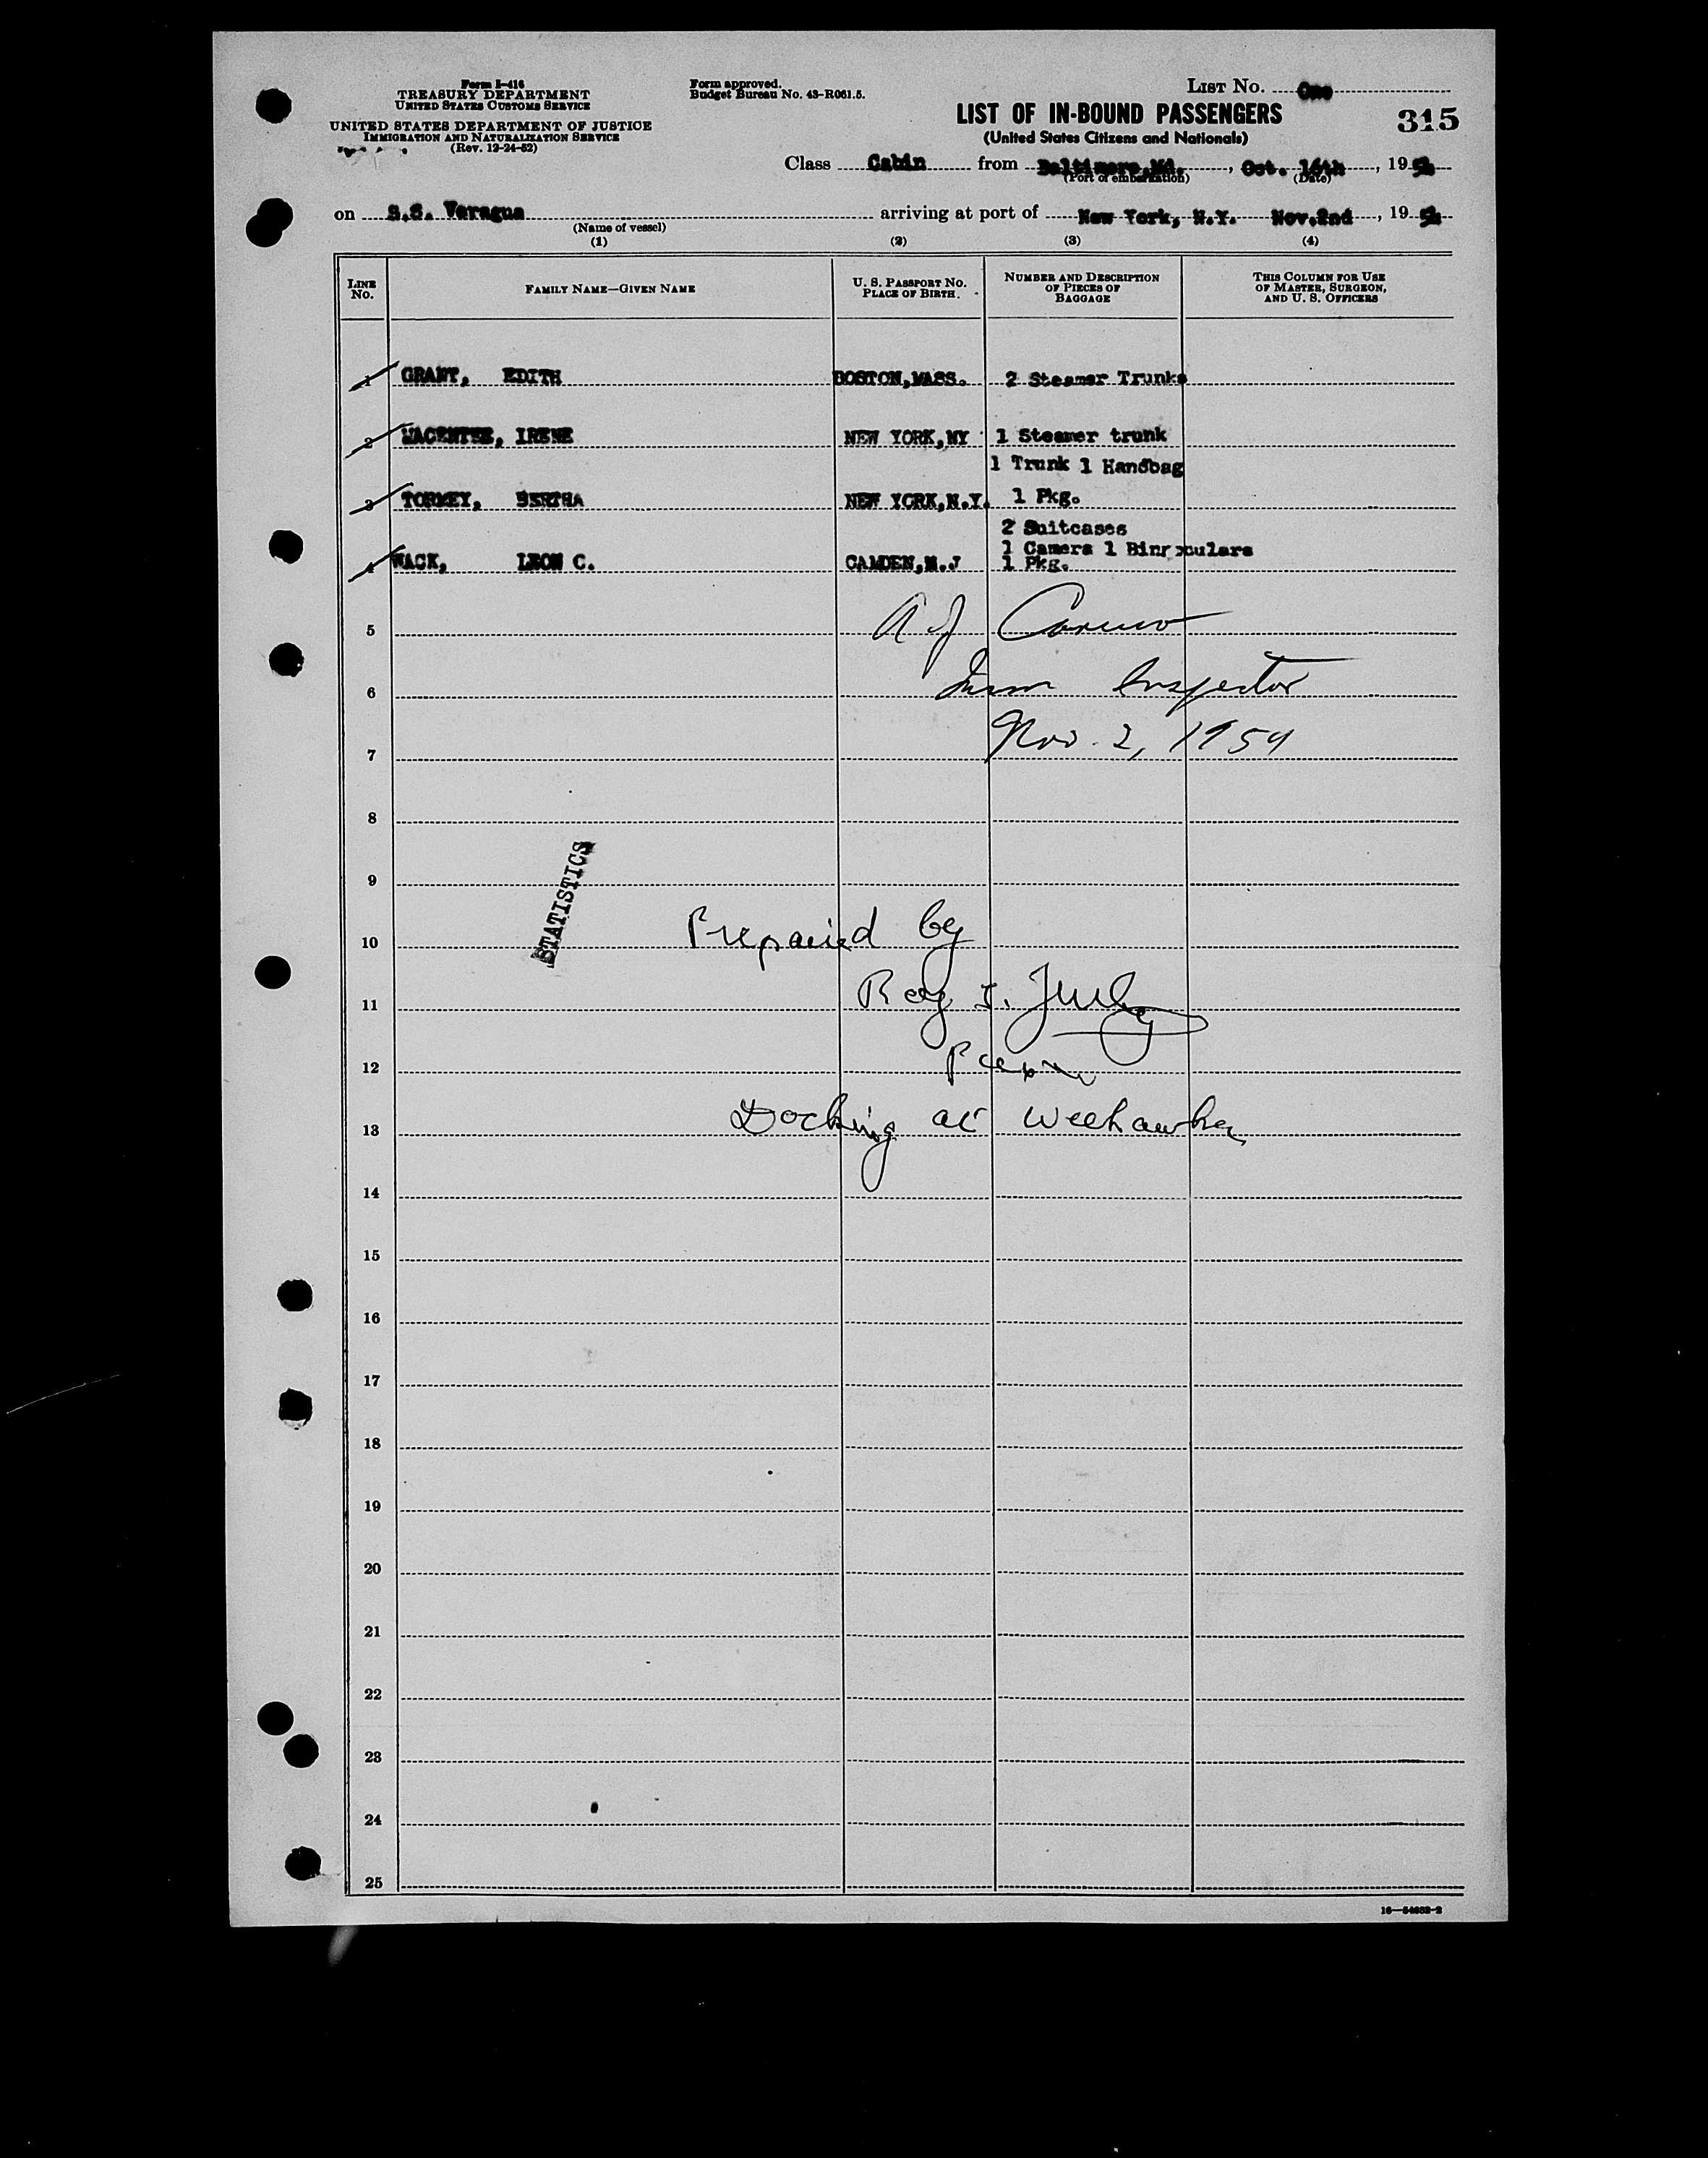 Form I-416
TREASURY DEPARTMENT
UNITED STATES CUSTOMS SERVICE
UNITED STATES DEPARTMENT OF JUSTICE
IMMIGRATION AND NATURALIZATION SERVICE
(Rev. 12-24-52)
Form approved.
Budget Bureau No. 43-R061.5.
LIST No. One
LIST OF IN-BOUND PASSENGERS
(United States Citizens and Nationals)
315
Class Cabin from Baltimore,Md. , Oct. 16th , 1954
(Port of embarkation) (Date)
on S.S. Veragua arriving at port of New York, N.Y. Nov.2nd , 1954
(Name of vessel)
(1) (2) (3) (4)
LINE No. FAMILY NAME—GIVEN NAME U. S. PASSPORT No. PLACE OF BIRTH. NUMBER AND DESCRIPTION OF PIECES OF BAGGAGE THIS COLUMN FOR USE OF MASTER, SURGEON, AND U. S. OFFICERS
1 GRANT, EDITH BOSTON,MASS. 2 Steamer Trunks
2 MACENTEE, IRENE NEW YORK,NY 1 Steamer trunk
1 Trunk 1 Handbag
3 TORMEY, BERTHA NEW YORK,N.Y. 1 Pkg.
2 Suitcases
1 Camera 1 Binroculars
4 WACK, LEON C. CAMDEN,N.J 1 Pkg.
5 A J Caruso
6 Imm Inspector
7 Nov. 2, 1954
8
9
STATISTICS
10 Prepaired by
11 Roy I.
12
13 Docking at Weehawken
14
15
16
17
18
19
20
21
22
23
24
25